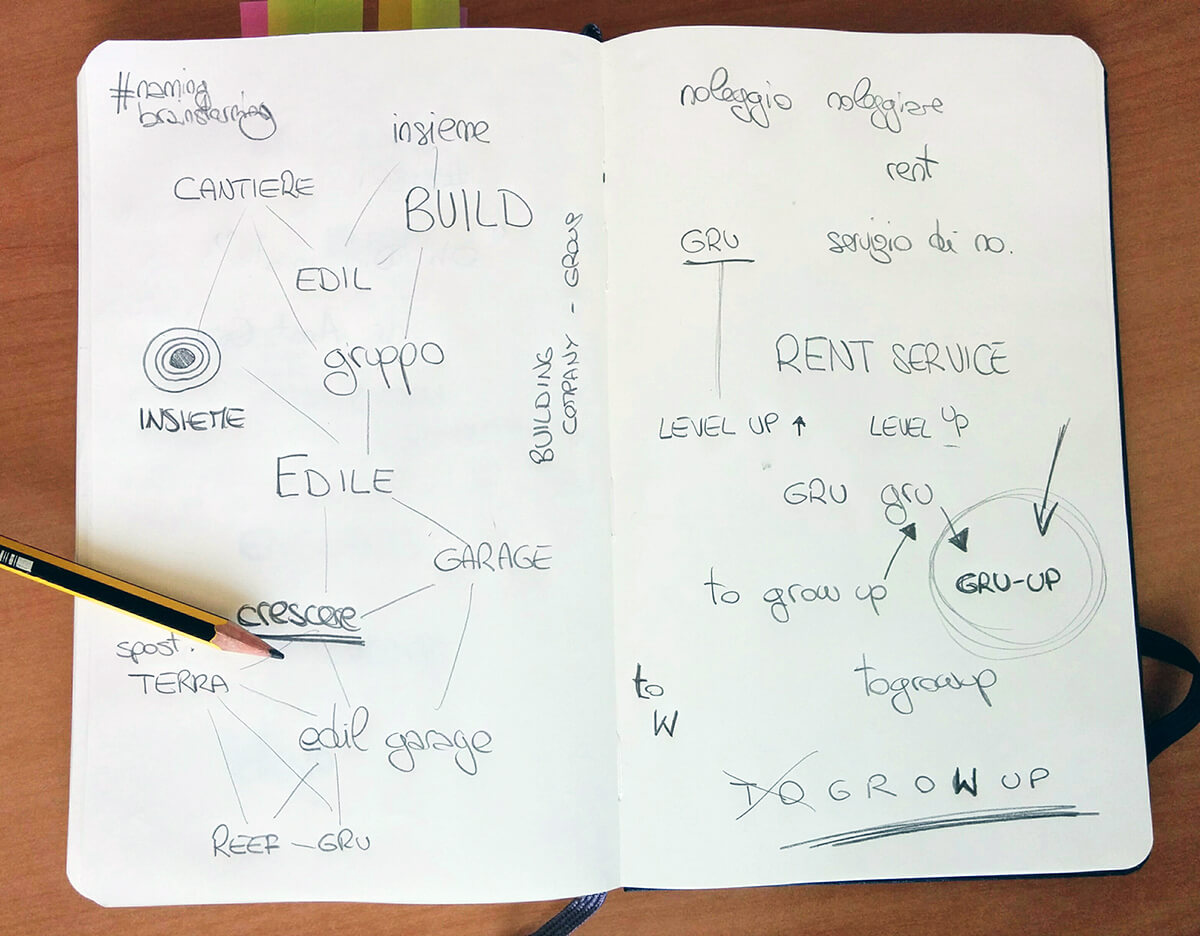 #naming
brainstorming
insieme
CANTIERE
BUILD
EDIL
gruppo
INSIEME
BUILDING
COMPANY - GROUP
EDILE
GARAGE
crescere
spost.
TERRA
edil garage
REEF - GRU
noleggio noleggiare
rent
GRU
servizio di no.
RENT SERVICE
LEVEL UP ↑ LEVEL UP
GRU gru
to grow up
GRU-UP
to
W
togrowup
TO GROW UP